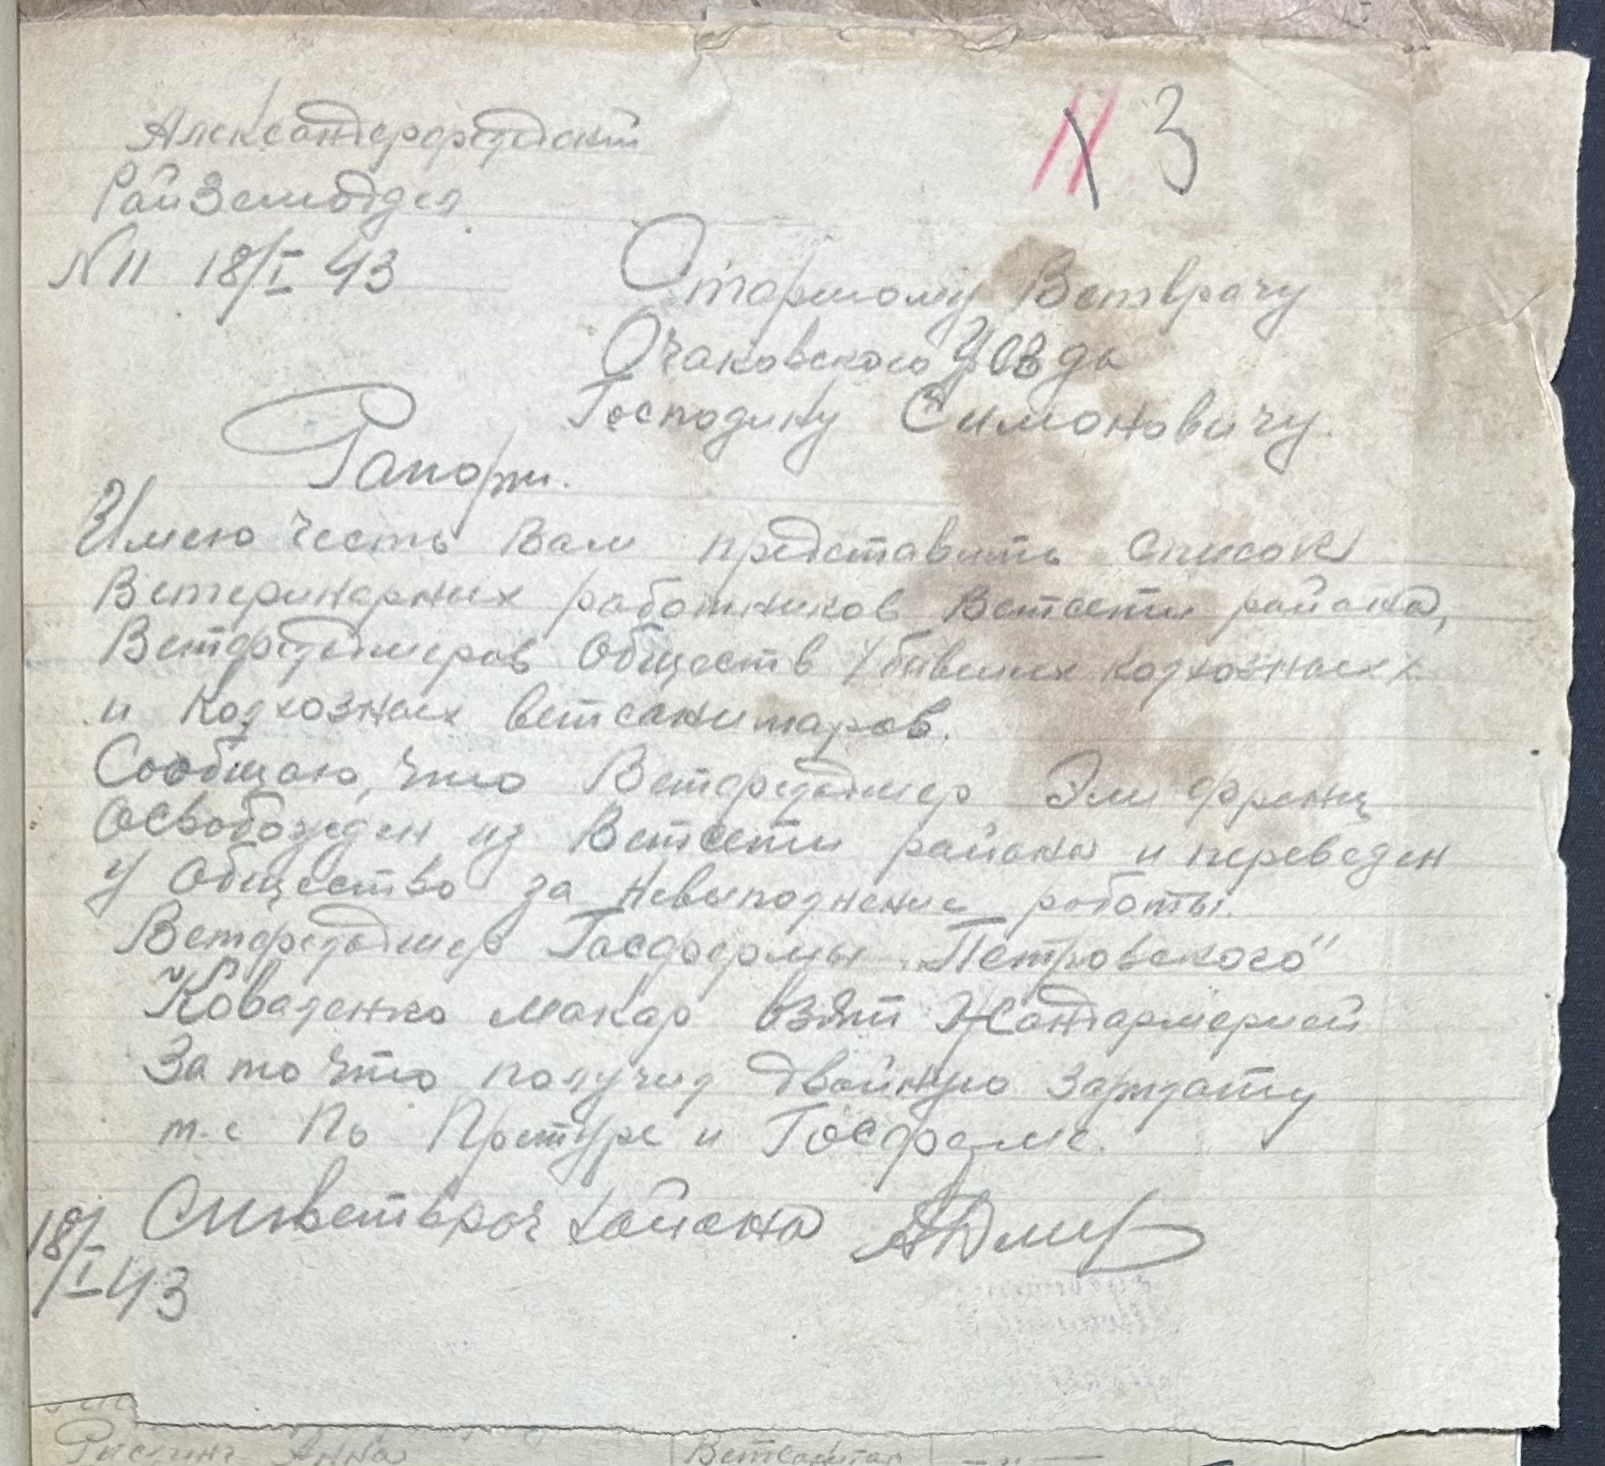 Александерфельдский
РайЗемотдел
N 11 18/I 43
3
Старшому Ветврачу
Очаковского Уезда
Господину Симоновичу.
Рапорт.
Имею честь Вам представить список
Ветеринарных работников Ветсети района,
Ветфельдшеров Обществ убывших колхозных
и колхозных ветсанитаров.
Сообщаю, что Ветфельдшер Эли Франц
Освобожден из Ветсети района и переведен
у Общество за невыполнение роботы.
Ветфельдшер Госфермы "Петровского"
Коваленко Макар взят Жандармерией
За то что получил двойную зарплату
т-е По Претуре и Госферме.
ветврач района
18/I 43
Анна
Ветсанитар —"—